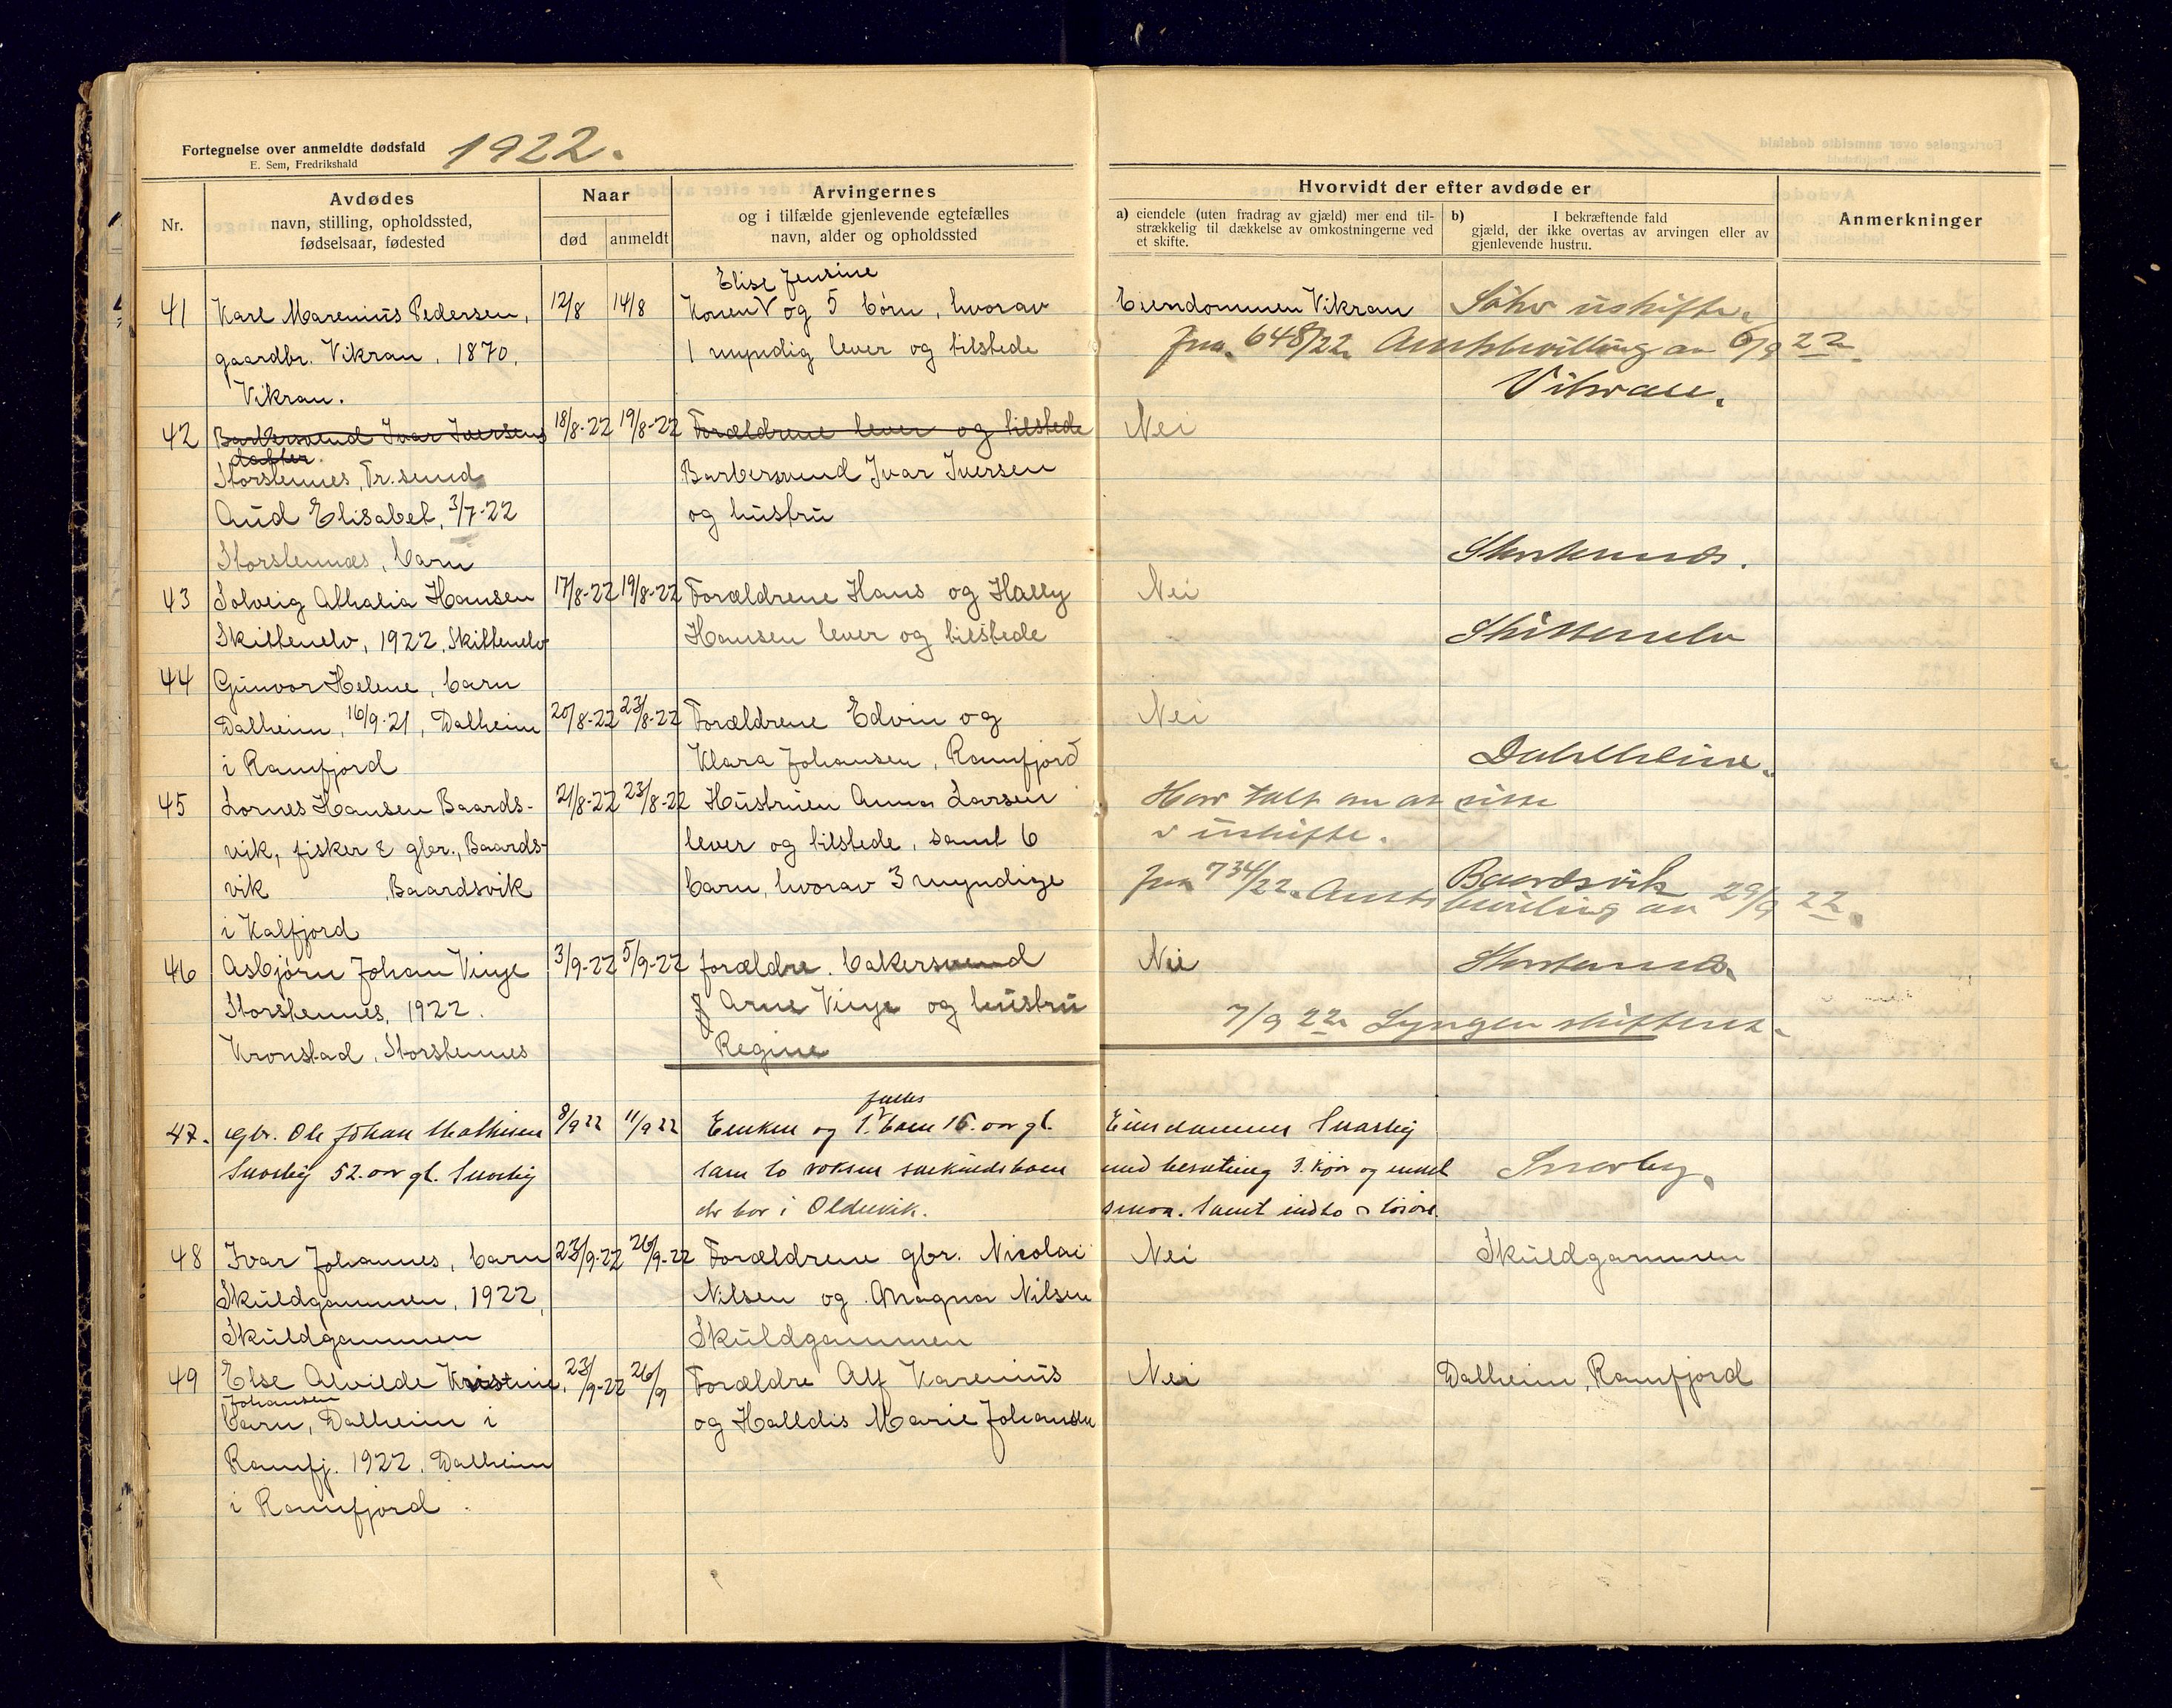 Fortegnelse over anmeldte dødsfald 1922.
E. Sem, Fredrikshald
Nr.
Avdødes
navn, stilling, opholdssted,
fødselsaar, fødested
Naar
død
anmeldt
Arvingernes
og i tilfælde gjenlevende egtefælles
navn, alder og opholdssted
Hvorvidt der efter avdøde er
a) eiendele (uten fradrag av gjæld) mer end til-
strækkelig til dækkelse av omkostningerne ved
et skifte.
b) I bekræftende fald
gjæld, der ikke overtas av arvingen eller av
gjenlevende hustru.
Anmerkninger
41 Karl Marenius Pedersen,
gaardbr. Vikran, 1870,
Vikran.
12/8 14/8
Elise Jensine
Konen V og 5 børn, hvorav
1 myndig lever og tilstede
Eiendommen Vikran
Søker uskifte.
Jnr. 648/22. Amtsbevilling av 6/9 22.
Vikran.
42 Barbersvend Ivar Iversens
datter
Storstennes, Tr.sund
Aud Elisabet, 3/7-22
Storstennes, barn
18/8-22 19/8-22
Forældrene lever og tilstede
Barbersvend Ivar Iversen
og hustru
Nei
Storstennes.
43 Solveig Athalia Hansen
Skittenelv, 1922, Skittenelv
17/8-22 19/8-22
Forældrene Hans og Hally
Hansen lever og tilstede
Nei
Skittenelv
44 Gunvor Helene, barn
Dalheim, 16/9-21, Dalheim
i Ramfjord
20/8-22 23/8-22
Forældrene Edvin og
Klara Johansen, Ramfjord
Nei
Dahlheim.
45 Lornes Hansen Baards-
vik, fisker & gbr., Baards-
vik , Baardsvik
i Kalfjord
21/8-22 23/8-22
Hustruen Anna Larsen
lever og tilstede, samt 6
barn, hvorav 3 myndige
Har talt om at sitte
i uskifte.
Baardsvik
Jnr 734/22. Amtsbevilling av 29/9 22.
46 Asbjørn Johan Vinje
Storstennes, 1922.
Kronstad, Storstennes
3/9-22 5/9-22
forældre. bakersvend
Arne Vinje og hustru
Regine
Nei
Storstennes.
7/9 22 Lyngen skifteret.
47. Gbr. Ole Johan Mathisen
Snarby 52. aar gl. Snarby
8/9 22 11/9 22
fælles
Enken og 1. V barn 15. aar gl.
sam to voksne særkuldsbarn
der bor i Oldervik.
Eiendommen Snarby
med besætning 3. kjør og endel
smaa. Samt indbo & løsøre.
Snarby.
48 Ivar Johannes, barn
Skuldgammen, 1922,
Skuldgammen
23/9-22 26/9-22
Forældrene gbr. Nicolai
Nilsen og Magna Nilsen
Skuldgammen
Nei
Skuldgammen
49 Else Alvilde Kristine,
Johansen
barn, Dalheim i
Ramfj. 1922, Dalheim
i Ramfjord.
23/9-22 26/9
Forældre Alf Karenius
og Halldis Marie Johansen
Nei
Dalheim, Ramfjord